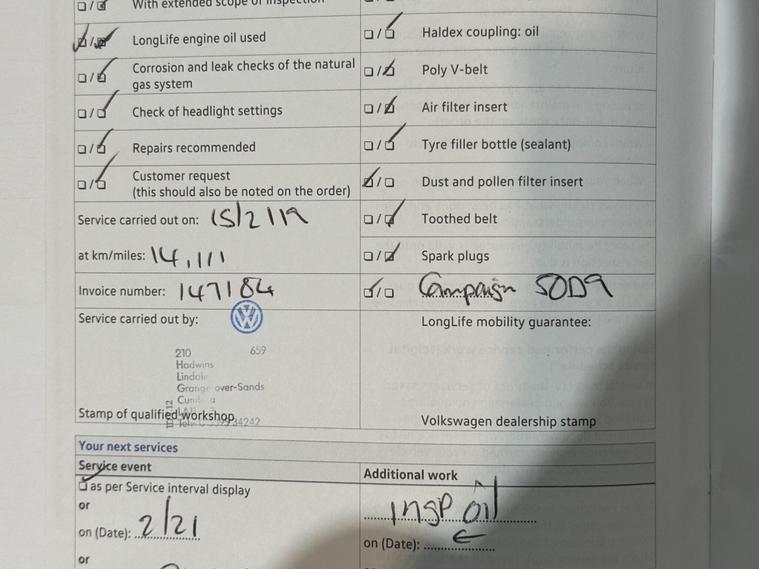 With extended scope of inspection
LongLife engine oil used
Corrosion and leak checks of the natural
gas system
Check of headlight settings
Repairs recommended
Customer request
(this should also be noted on the order)
Service carried out on: 15/2/19
at km/miles: 14,111
Invoice number: 147184
Service carried out by:
210 659
Hadwins
Lindale
Grange over-Sands
Stamp of qualified workshop
Haldex coupling: oil
Poly V-belt
Air filter insert
Tyre filler bottle (sealant)
Dust and pollen filter insert
Toothed belt
Spark plugs
Campaign 50D9
LongLife mobility guarantee:
Volkswagen dealership stamp
Your next services
Service event
as per Service interval display
or
on (Date): 2/21
or
Additional work
INSP oil
on (Date):